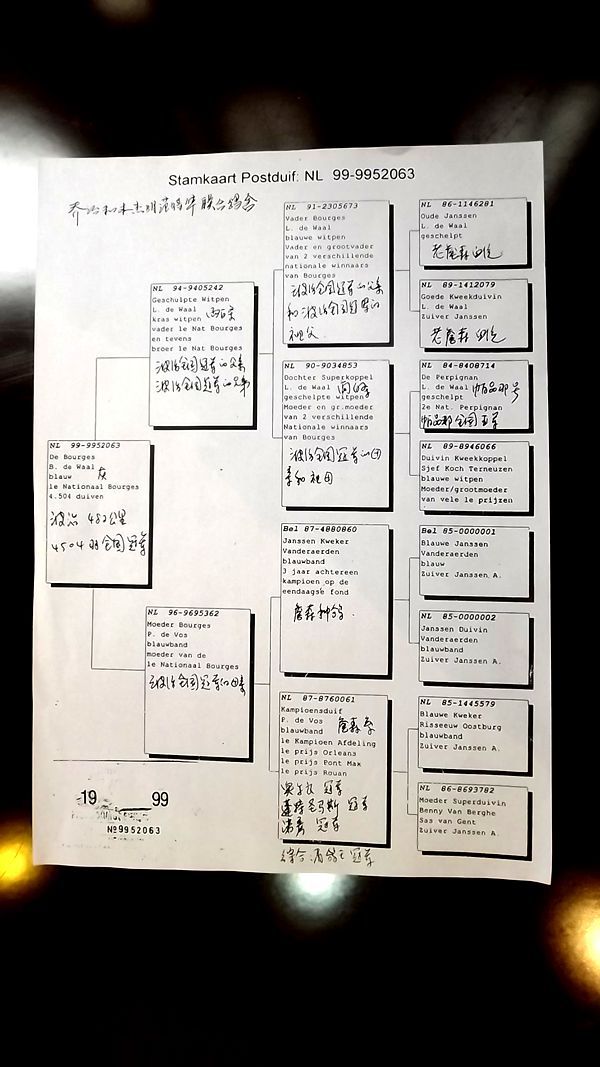 Stamkaart Postduif: NL 99-9952063
NL 99-9952063
De Bourges
B. de Waal
blauw 灰
1e Nationaal Bourges
4.504 duiven
波治 482公里
4504羽全国冠军
NL 94-9405242
Geschulpte Witpen
L. de Waal
kras witpen
vader 1e Nat Bourges
en tevens
broer 1e Nat Bourges
波治全国冠军的父亲
波治全国冠军的兄弟
NL 96-9695362
Moeder Bourges
P. de Vos
blauwband
moeder van de
1e Nationaal Bourges
波治全国冠军的母亲
NL 91-2305673
Vader Bourges
L. de Waal
blauwe witpen
Vader en grootvader
van 2 verschillende
nationale winnaars
van Bourges
波治全国冠军的父亲
和波治全国冠军的
祖父
NL 90-9034853
Dochter Superkoppel
L. de Waal
geschelpte witpen
Moeder en gr.moeder
van 2 verschillende
Nationale winnaars
van Bourges
波治全国冠军的母
亲和祖母
Bel 87-4880860
Janssen Kweker
Vanderaerden
blauwband
3 jaar achtereen
kampioen op de
eendaagse fond
詹森种鸽
NL 87-8760061
Kampioensduif
P. de Vos 詹森系
blauwband
1e Kampioen Afdeling
1e prijs Orleans
1e prijs Pont Max
1e prijs Rouan
冠军
冠军
冠军
冠军
NL 86-1146281
Oude Janssen
L. de Waal
geschelpt
老詹森
NL 89-1412079
Goede Kweekduivin
L. de Waal
Zuiver Janssen
老詹森
NL 84-8408714
De Perpignan
L. de Waal
geschelpt
2e Nat. Perpignan
NL 89-8946066
Duivin Kweekkoppel
Sjef Koch Terneuzen
blauwe witpen
Moeder/grootmoeder
van vele 1e prijzen
Bel 85-0000001
Blauwe Janssen
Vanderaerden
blauw
Zuiver Janssen A.
NL 85-0000002
Janssen Duivin
Vanderaerden
blauwband
Zuiver Janssen A.
NL 85-1445579
Blauwe Kweker
Risseeuw Oostburg
blauwband
Zuiver Janssen A.
NL 86-8693782
Moeder Superduivin
Benny Van Berghe
Sas van Gent
Zuiver Janssen A.
19 99
№9952063